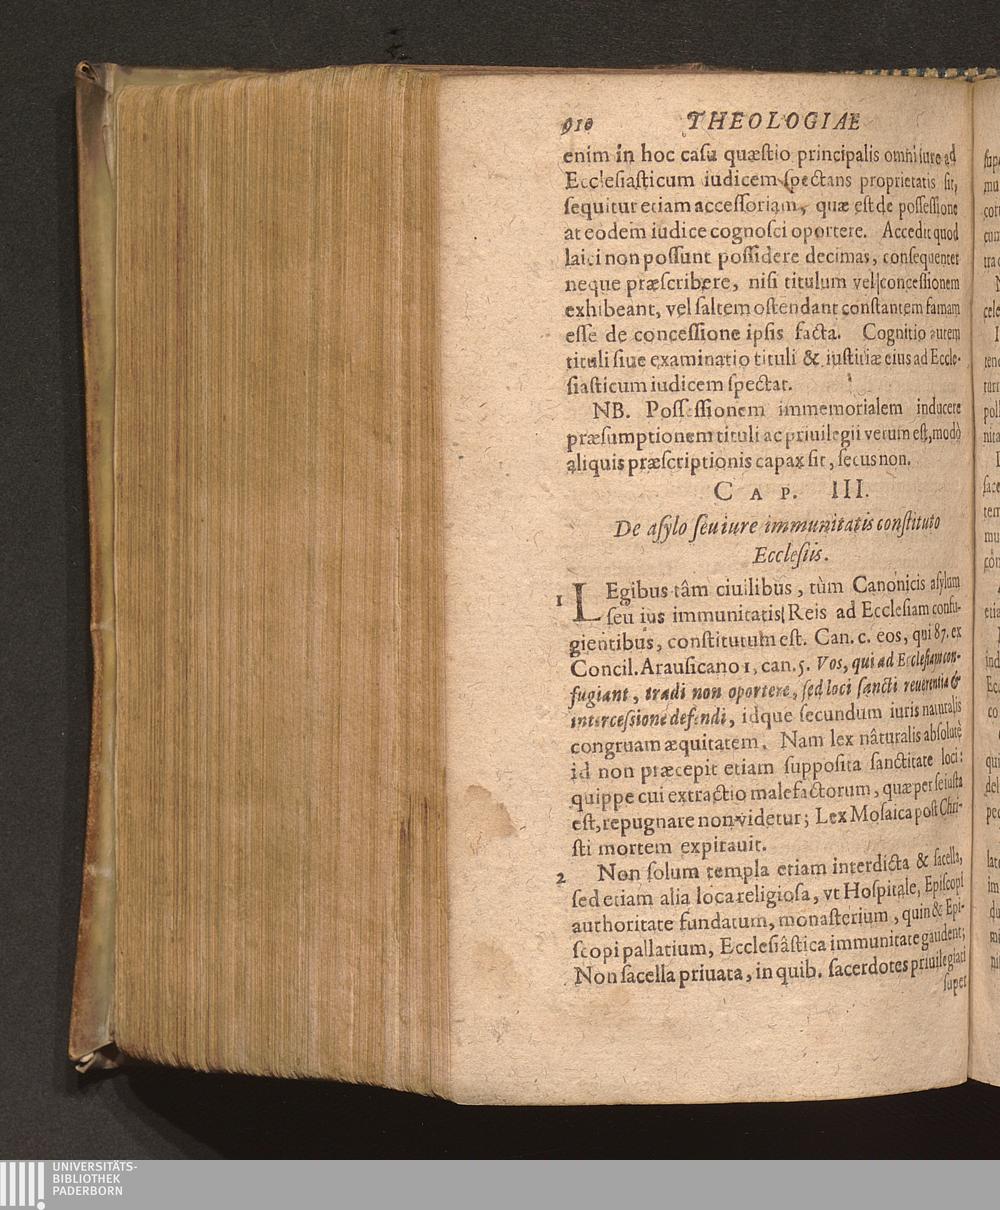 910 THEOLOGIÆ
enim in hoc caſu quæſtio principalis omni iure ad
Eccleſiaſticum iudicem ſpectans proprietatis ſit,
ſequitur etiam acceſſoriam, quæ eſt de poſſeſſione
at eodem iudice cognoſci oportere. Accedit quod
laici non poſſunt poſſidere decimas, conſequenter
neque præſcribere, niſi titulum vel conceſſionem
exhibeant, vel ſaltem oſtendant conſtantem famam
eſſe de conceſſione ipſis facta. Cognitio autem
tituli ſiue examinatio tituli & iuſtitiæ eius ad Eccle-
ſiaſticum iudicem ſpectat.
NB. Poſſeſſionem immemorialem inducere
præſumptionem tituli ac priuilegii verum eſt, modò
aliquis præſcriptionis capax ſit, ſecus non.
CAP. III.
De aſylo ſeu iure immunitatis conſtituto
Eccleſiis.
1 LEgibus tâm ciuilibus, tùm Canonicis aſylum
ſeu ius immunitatis Reis ad Eccleſiam confu-
gientibus, conſtitutum eſt. Can. c. eos, qui 87. ex
Concil. Arauſicano 1, can. 5. Vos, qui ad Eccleſiam con-
fugiant, tradi non oportere, ſed loci ſancti reuerentia &
interceſsione defendi, idque ſecundum iuris naturalis
congruam æquitatem. Nam lex nâturalis abſolutè
id non præcepit etiam ſuppoſita ſanctitate loci:
quippe cui extractio malefactorum, quæ per ſe iuſta
eſt, repugnare non videtur; Lex Moſaica poſt Chri-
ſti mortem expirauit.
2 Non ſolum templa etiam interdicta & ſacella,
ſed etiam alia loca religioſa, vt Hoſpitale, Epiſcopi
authoritate fundatum, monaſterium, quin & Epi-
ſcopi pallatium, Eccleſiâſtica immunitate gaudent;
Non ſacella priuata, in quib. ſacerdotes priuilegiati
ſuper
UNIVERSITÄTS-
BIBLIOTHEK
PADERBORN